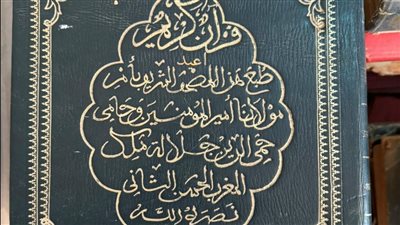 قرآن كريم
أعيد
طبع هذا المصحف الشريف بأمر
مولانا أمير المؤمنين وحامي
حمى الدين جلالة ملك
المغرب الحسن الثاني
نصره الله